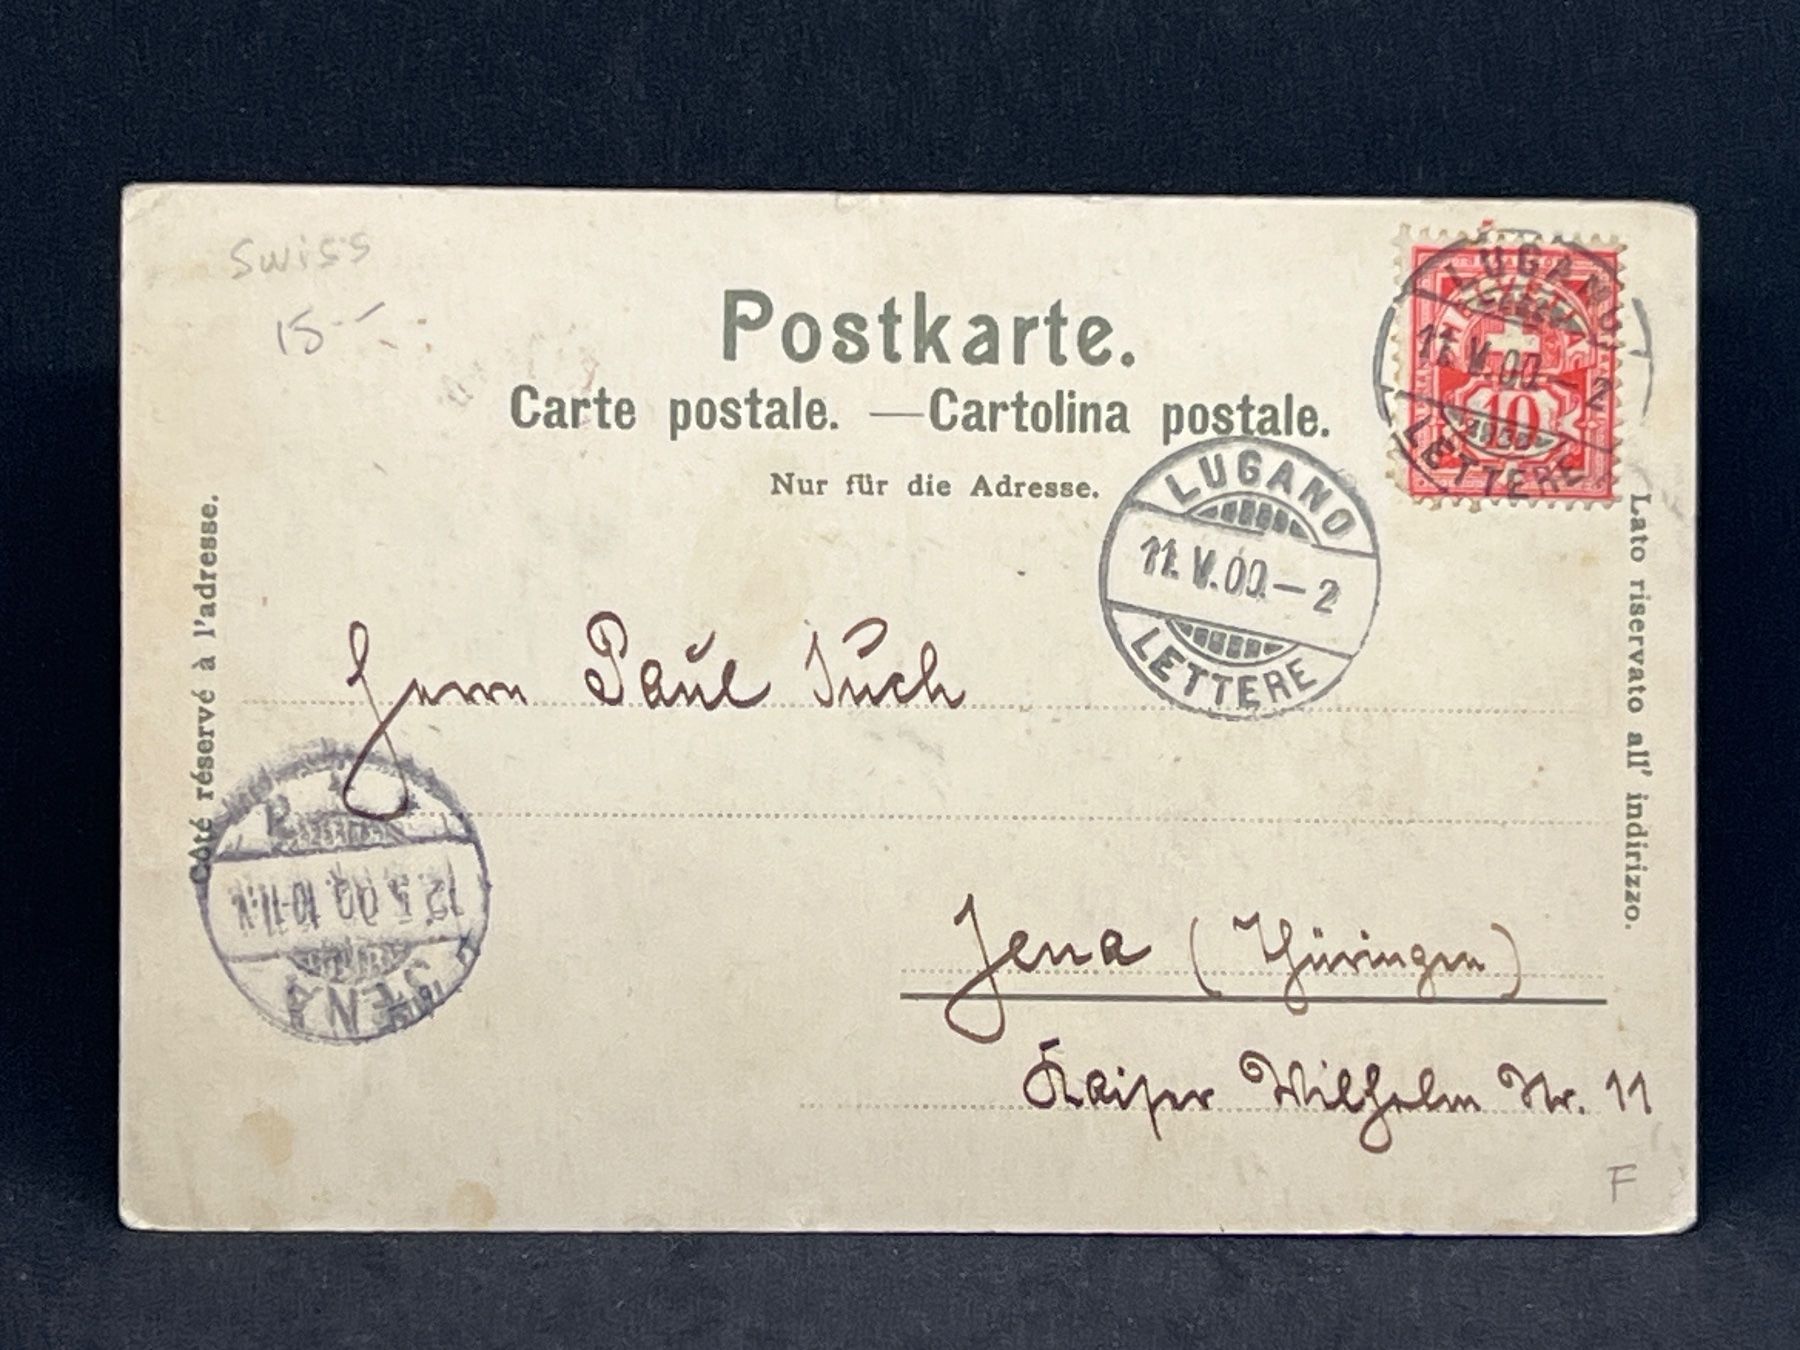 swiss
15--
Postkarte.
Carte postale. — Cartolina postale.
Nur für die Adresse.
Côté réservé à l'adresse.
Lato riservato all' indirizzo.
LUGANO
11.V.00.-2
LETTERE
10
LUGANO
11.V.00.-2
LETTERE
Herrn Paul
JENA
12.5.00.10-11.V.
Jena (Thüringen)
Kaiser Wilhelm Nr. 11
F